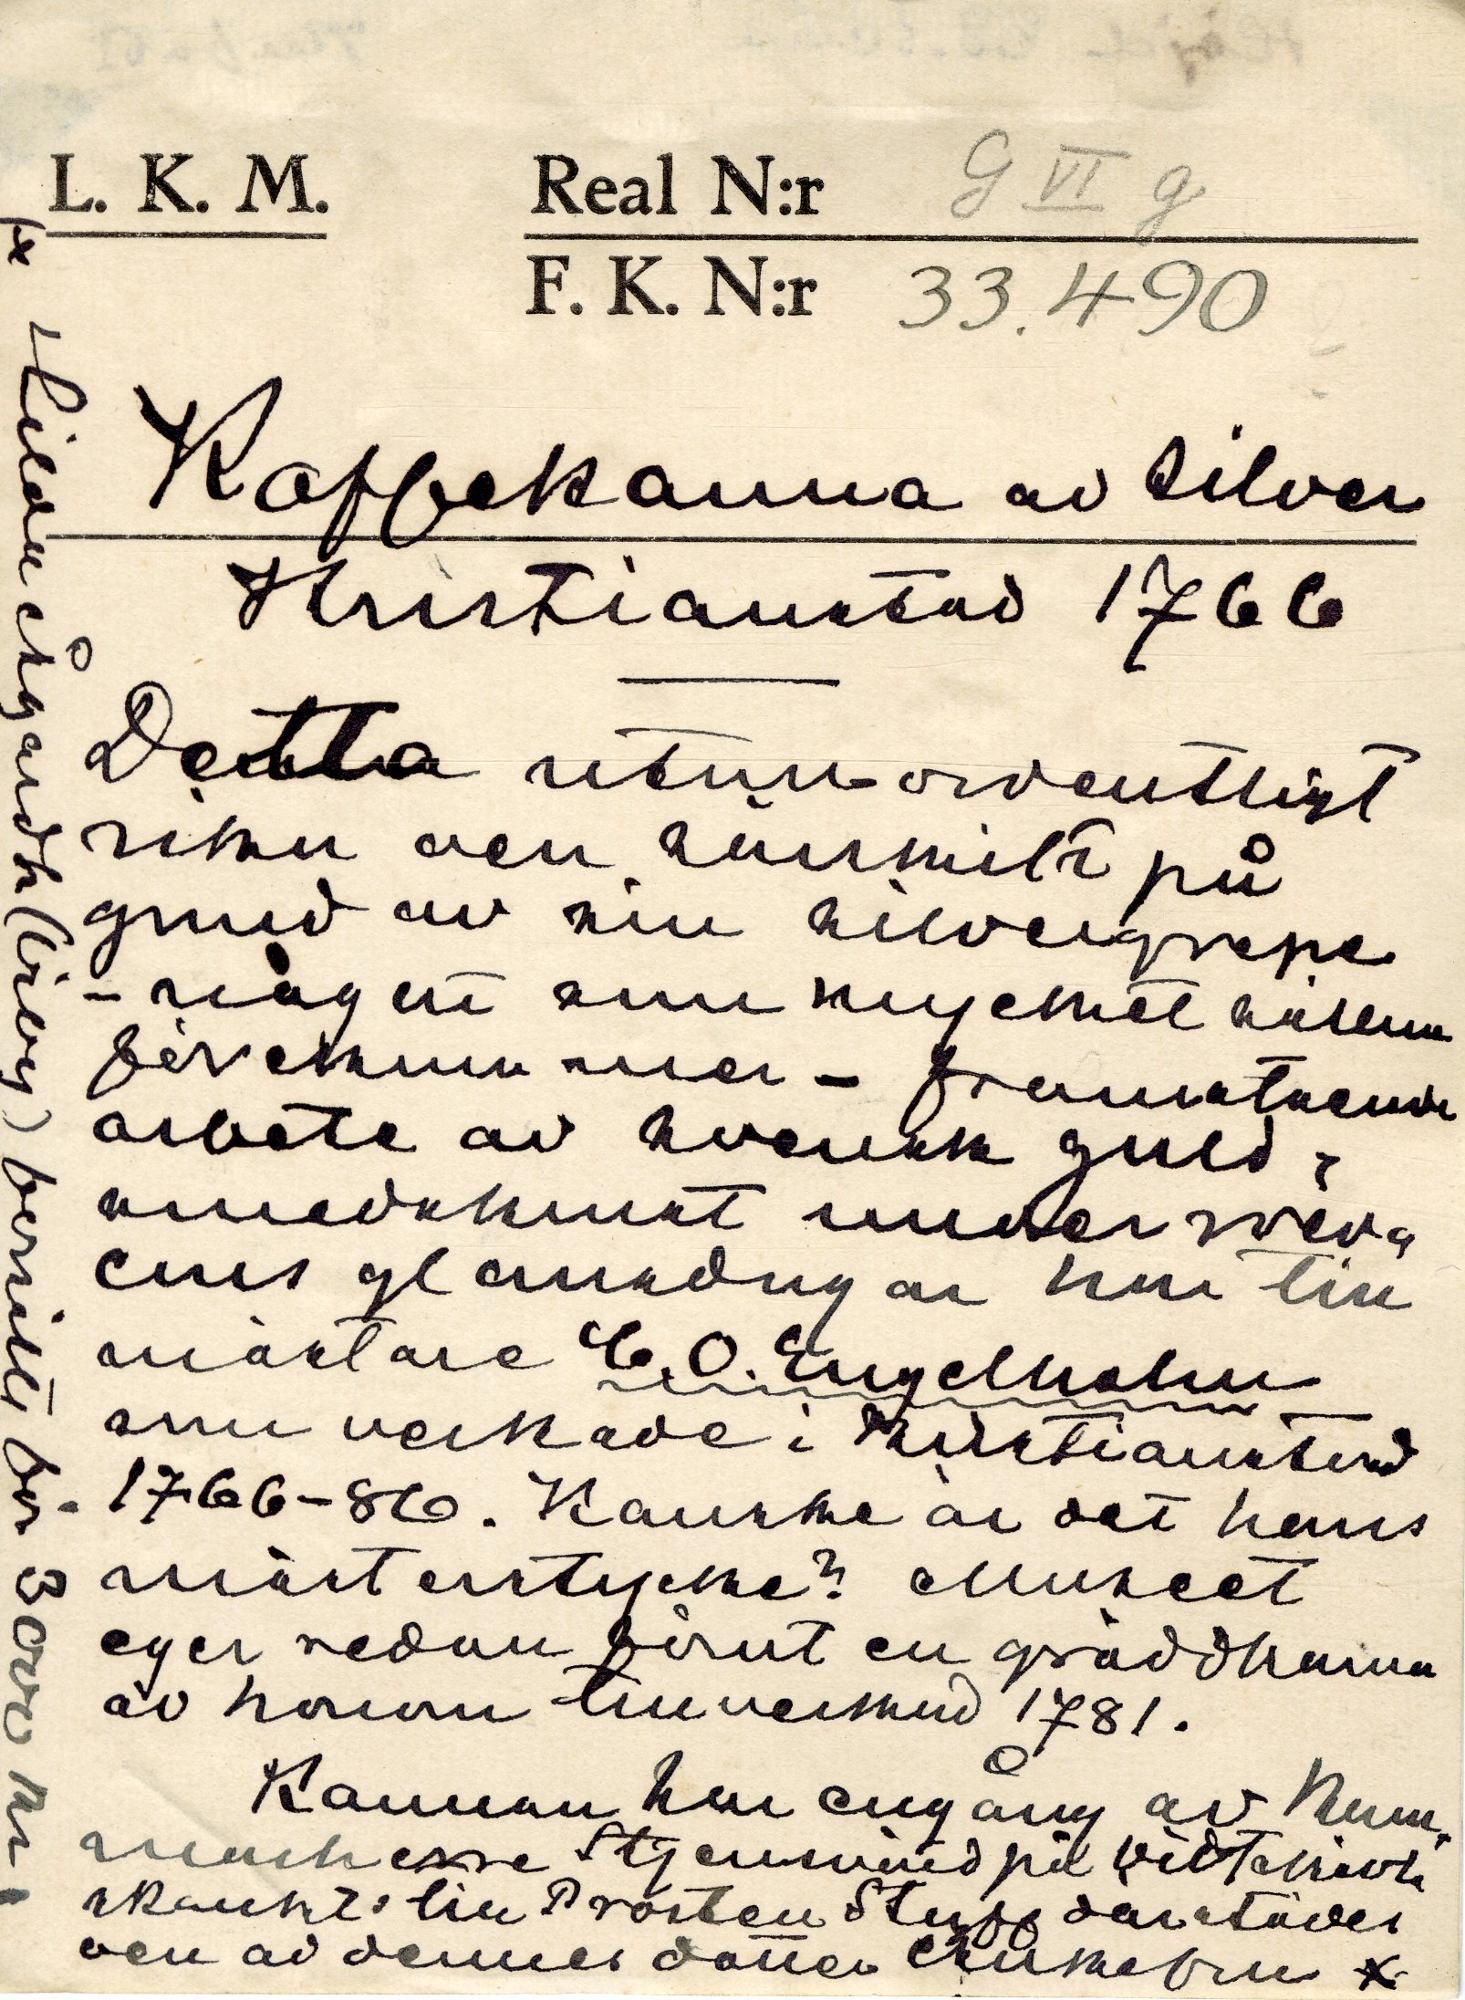 L. K. M.
Real N:r G VI g
F. K. N:r 33.490
Kaffekanna av silver
Kristianstad 1766
Detta utom-ordentligt
rika och särskilt på
grund av sin silvergrepe
- något som mycket sällan
förekom-mer - framstående
arbete av svensk guld-
smedskonst under
ens glansdagar har till
mästare C. O. Engelholm
som verkade i Kristianstad
1766-86. Kanske är det hans
mästerstycke? Museet
eger redan förut en gräddkanna
av honom tillverkad 1781.
Kannan har engång av Kam-
marherre Stjernsvärd på Widtskövle
skänkts till Prosten Stuff därstädes
och av dennes dotter Enkefru x
x Hilda Ekgardh (Örby) berrätts för 300 kr.